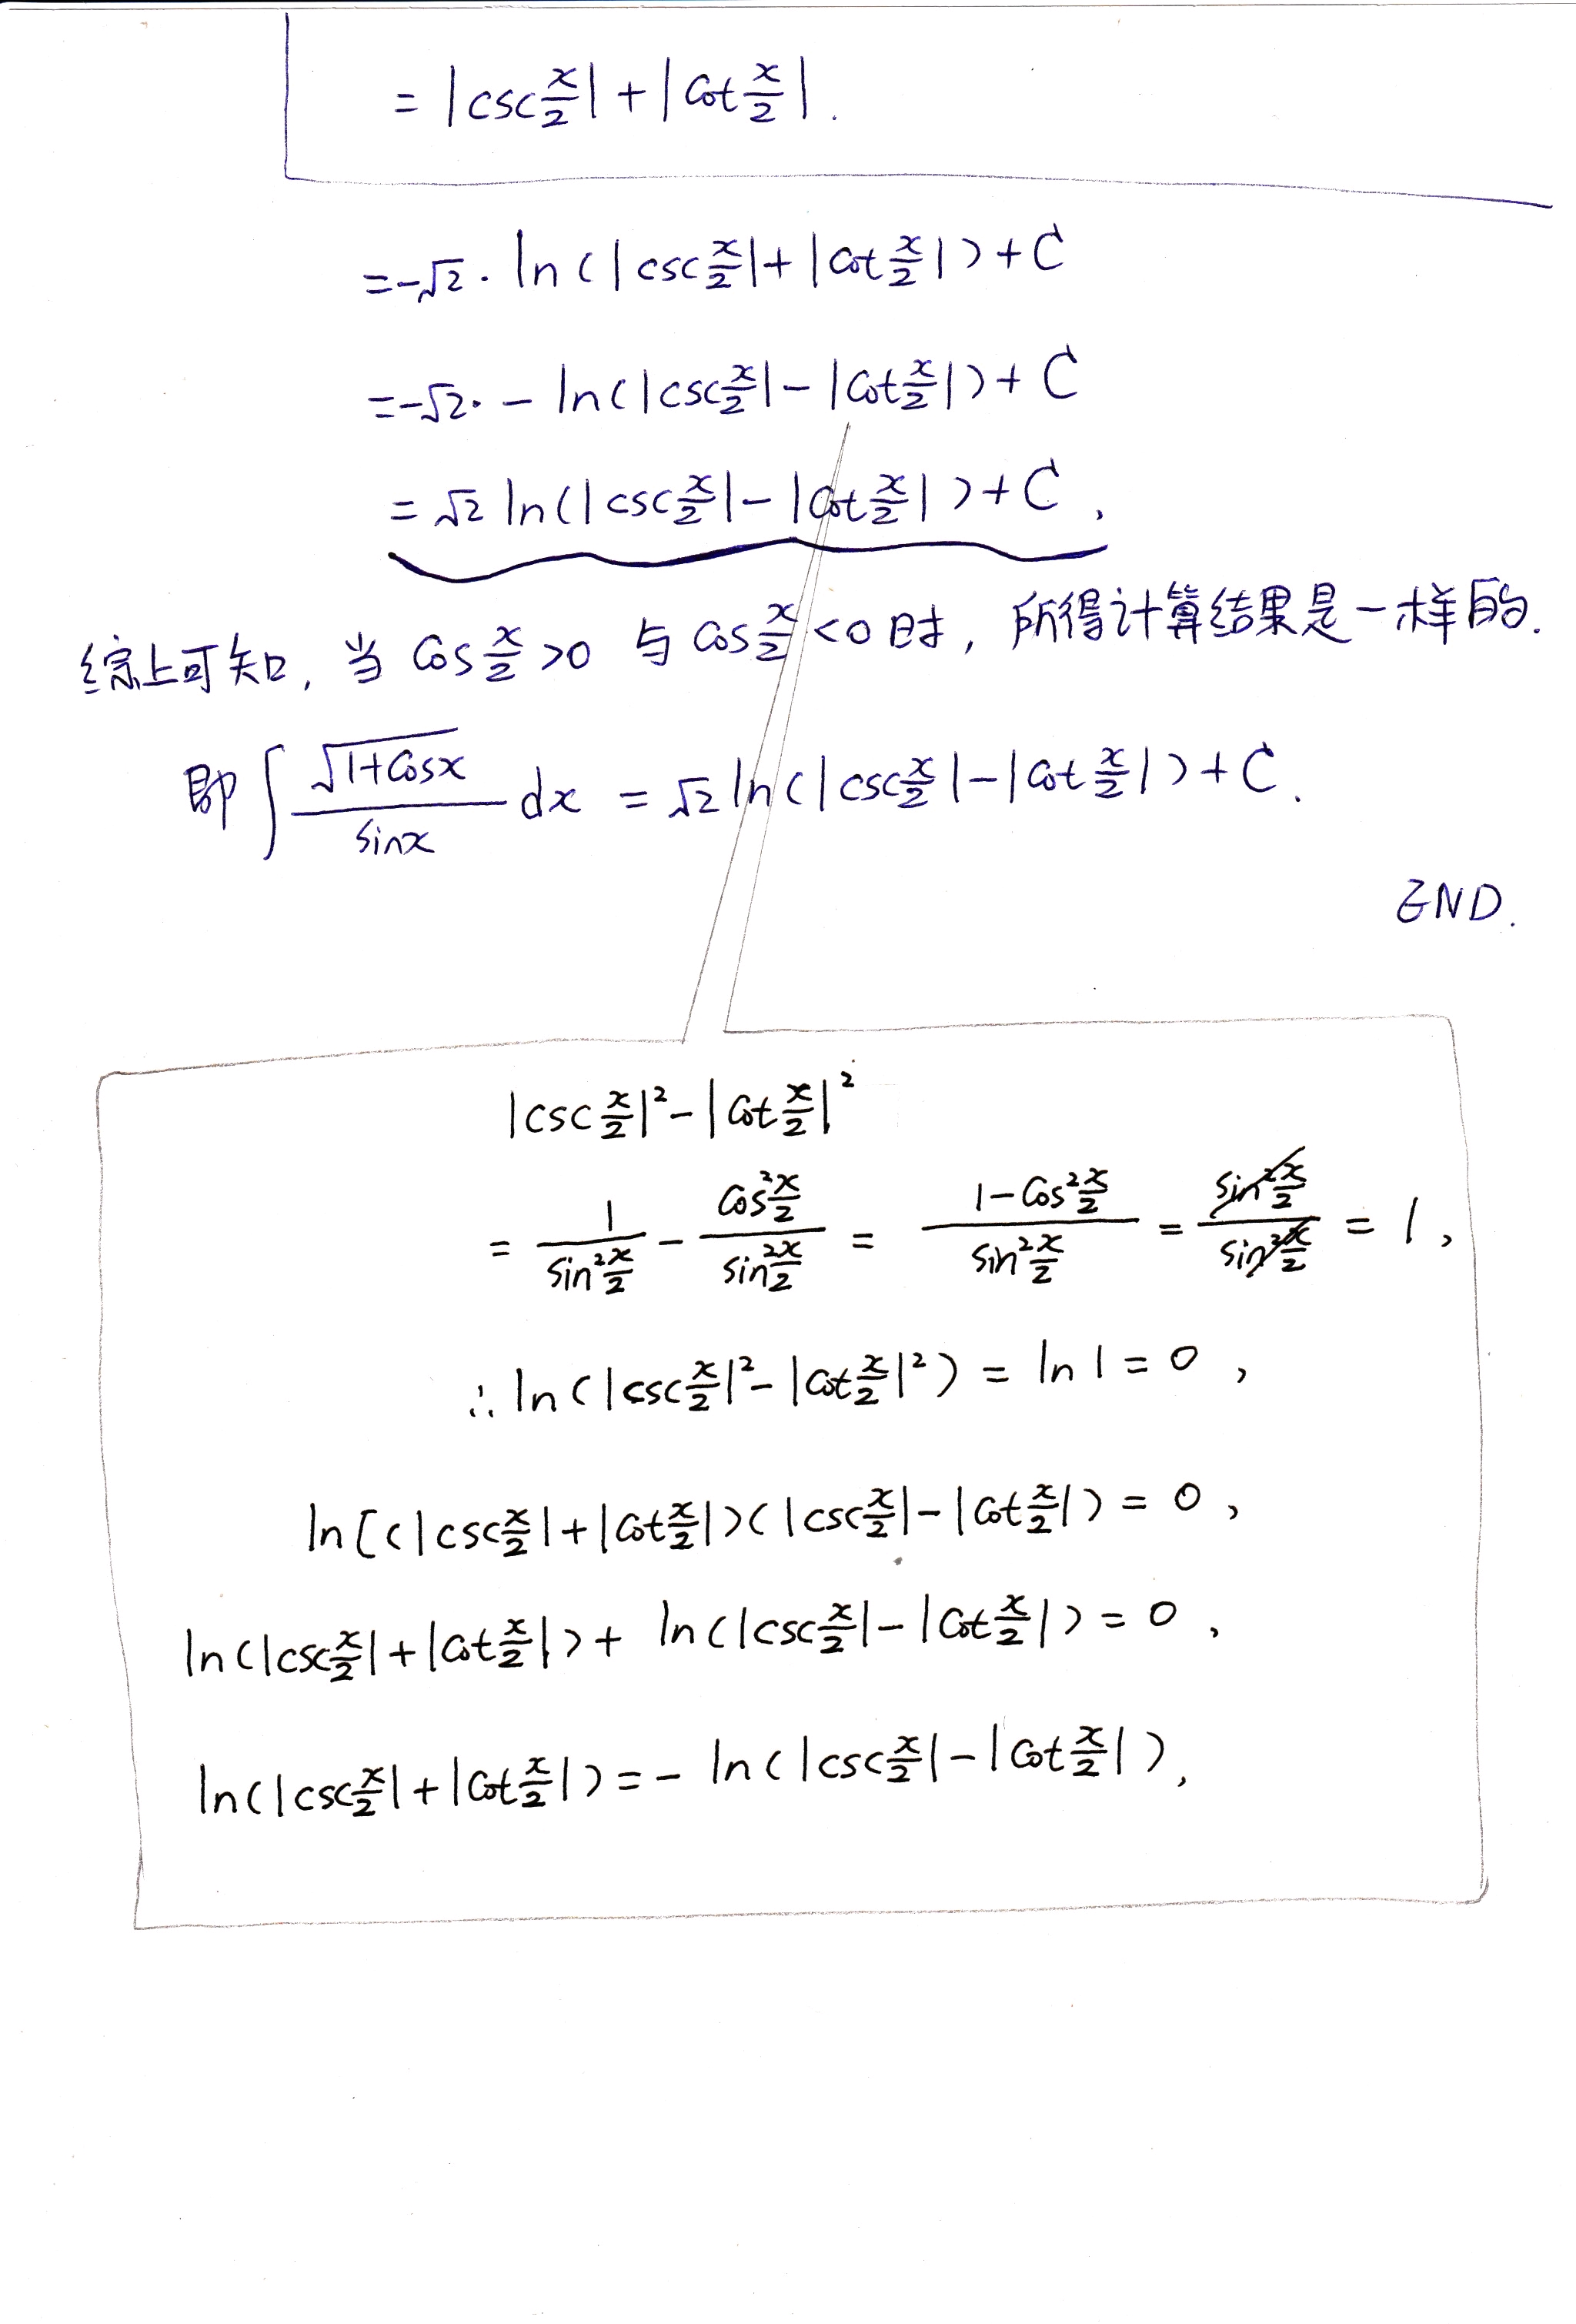 = |csc x/2| + |cot x/2|.
= -√2 · ln(|csc x/2| + |cot x/2|) + C
= -√2 · - ln(|csc x/2| - |cot x/2|) + C
= √2 ln(|csc x/2| - |cot x/2|) + C,
综上可知, 当 cos x/2 >0 与 cos x/2 <0 时, 所得计算结果是一样的.
即 ∫ √(1+cosx)/sinx dx = √2 ln(|csc x/2| - |cot x/2|) + C.
END.
|csc x/2|² - |cot x/2|²
= 1/(sin² x/2) - (cos² x/2)/(sin² x/2) = (1-cos² x/2)/(sin² x/2) = (sin² x/2)/(sin² x/2) = 1,
∴ ln(|csc x/2|² - |cot x/2|²) = ln1 = 0,
ln[(|csc x/2| + |cot x/2|)(|csc x/2| - |cot x/2|) = 0,
ln(|csc x/2| + |cot x/2|) + ln(|csc x/2| - |cot x/2|) = 0,
ln(|csc x/2| + |cot x/2|) = - ln(|csc x/2| - |cot x/2|),